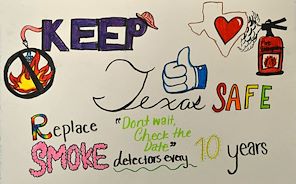 KEEP
Texas SAFE
Replace "Don't wait,
Check the
Date"
SMOKE detectors every 10 years